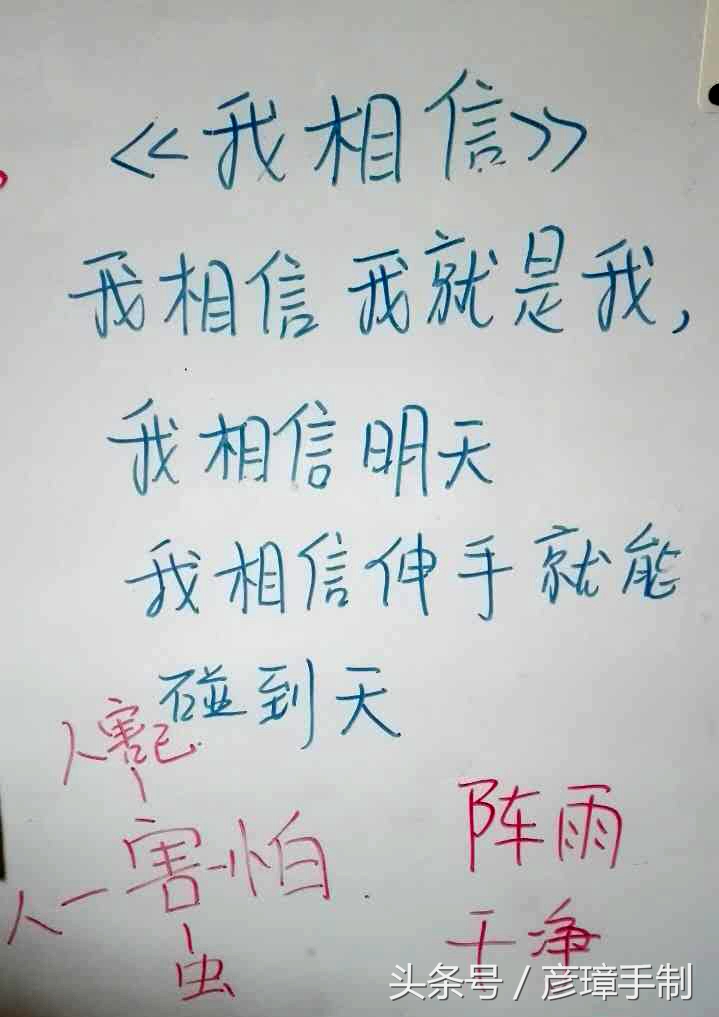 《我相信》
我相信我就是我,
我相信明天
我相信伸手就能
碰到天
人害己
人-害-怕
虫
阵雨
干净
头条号/彦璋手制